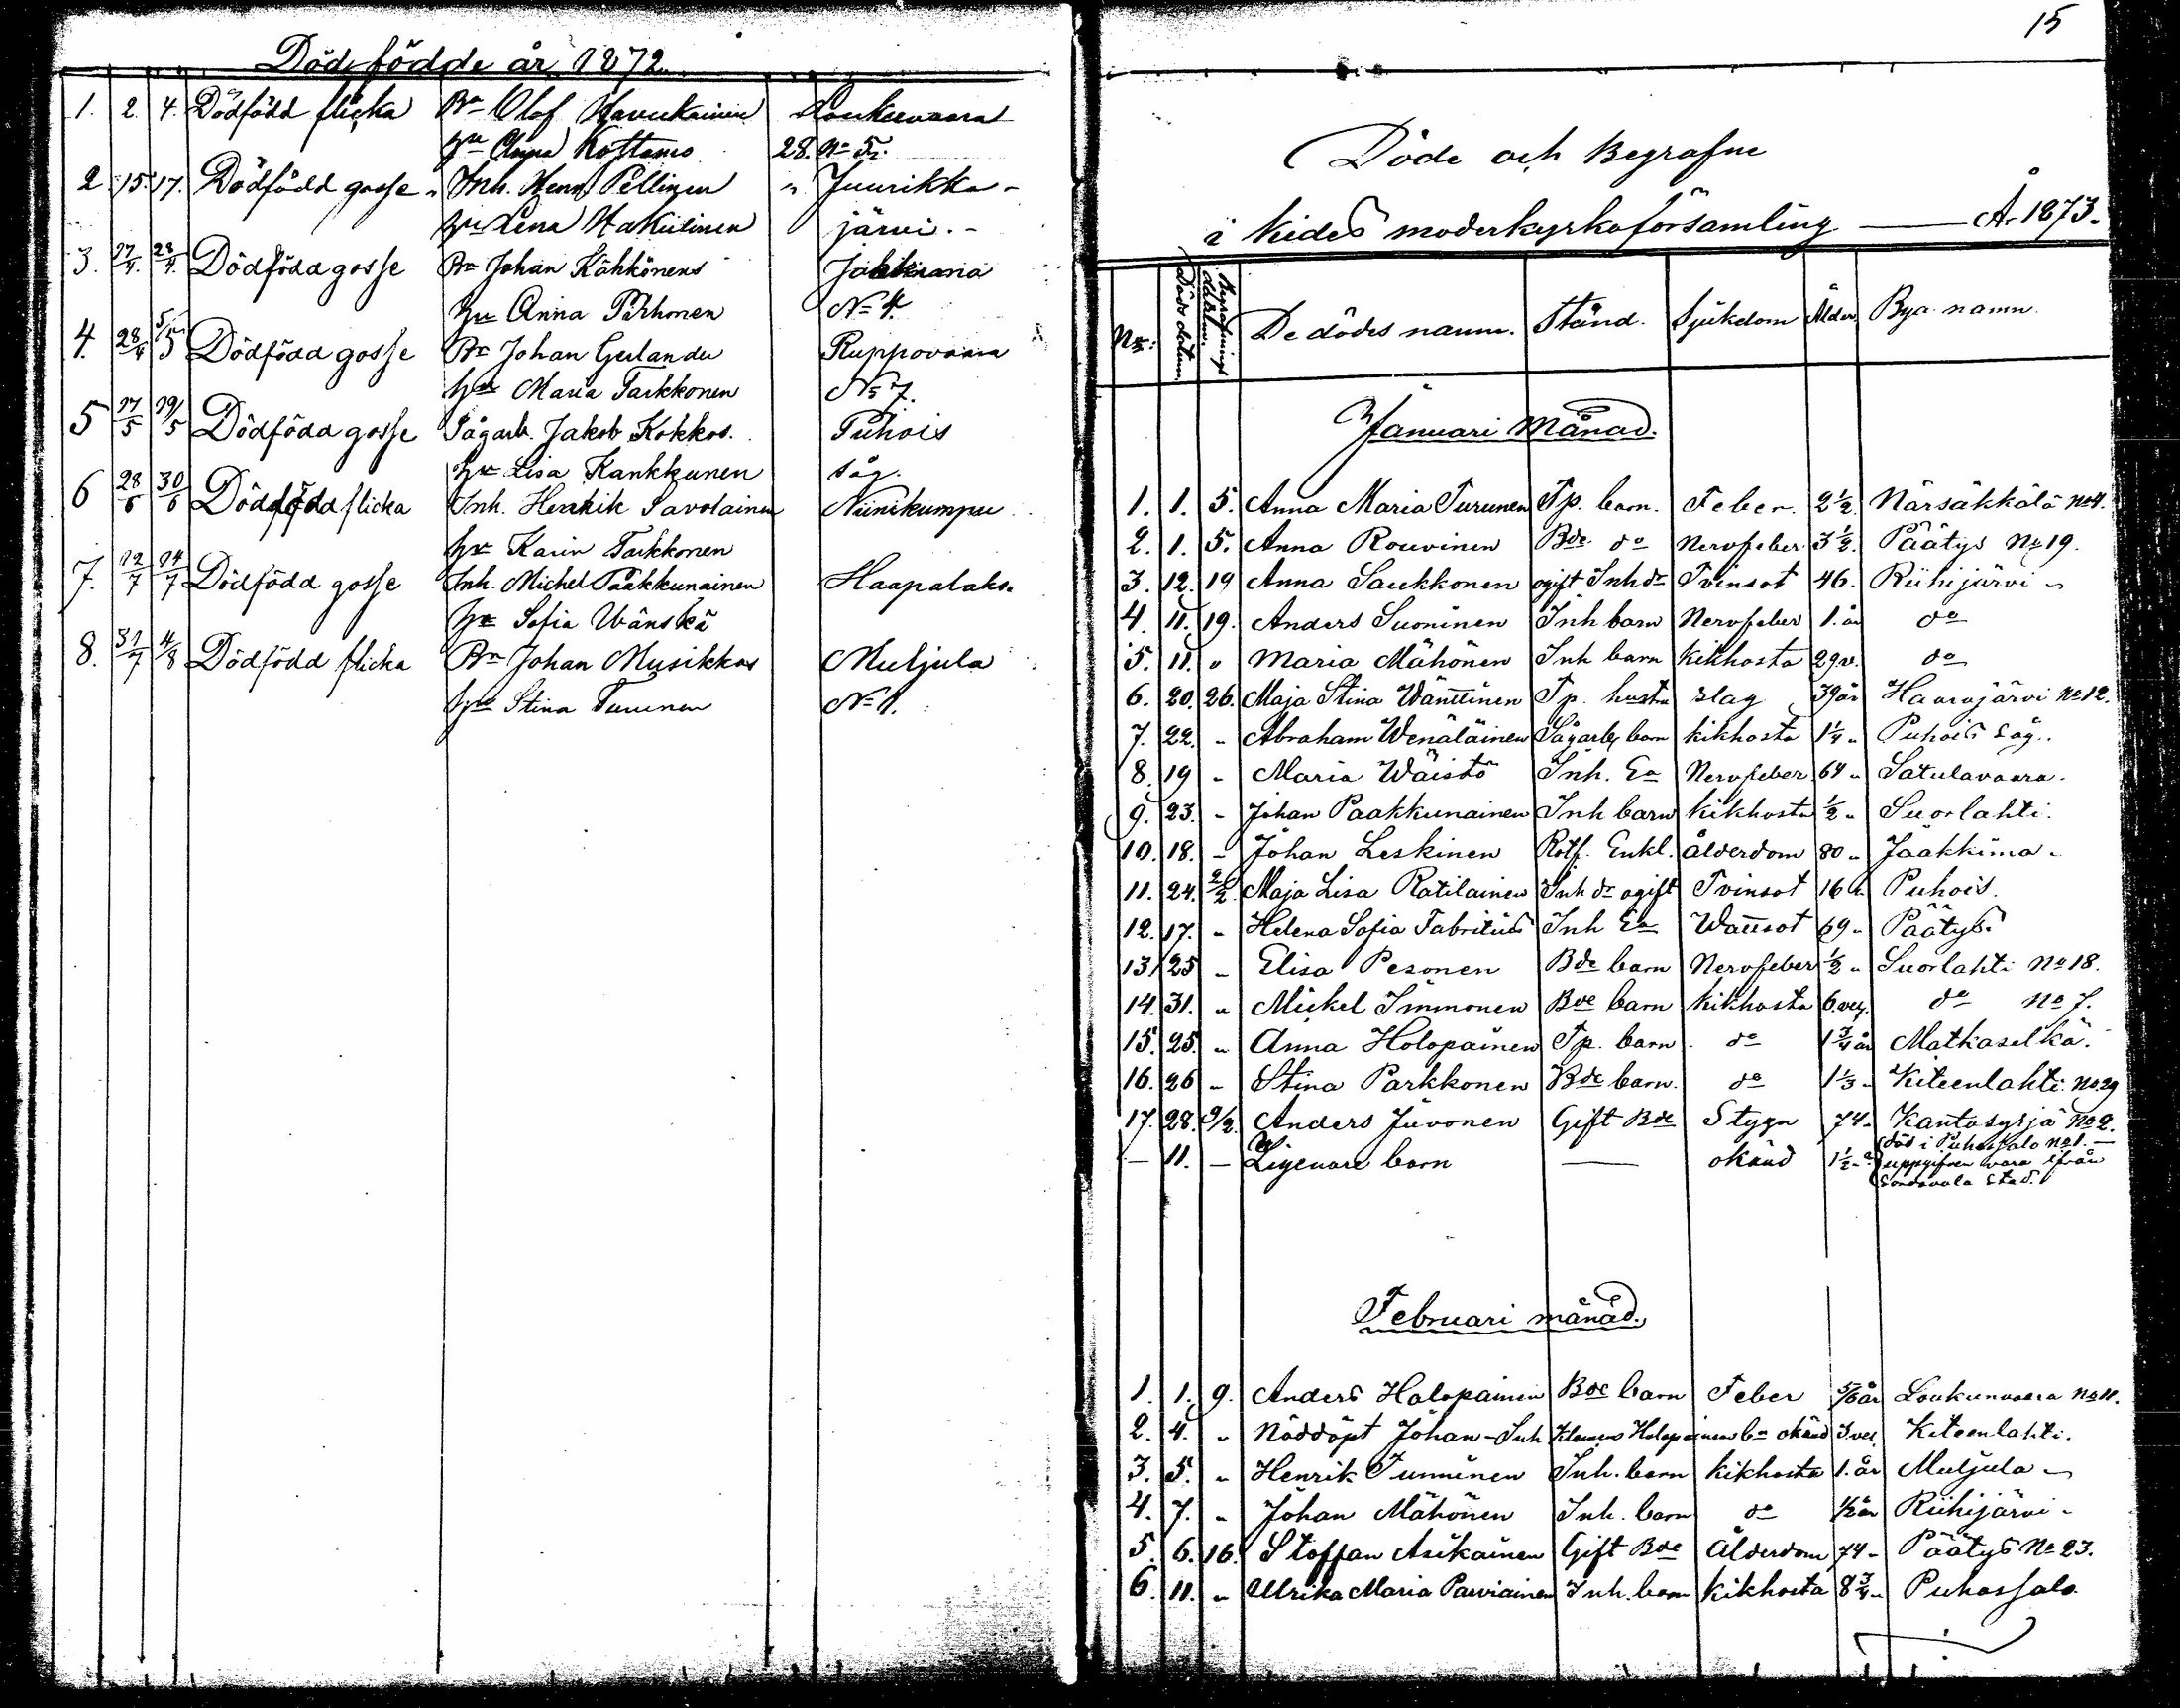 Dödfödde år 1872.
1. 2. 4. Dödfödd flicka Bn Olof Havukainen Loukuvaara
hu Anna Kottamo 28. No 5.
2 15. 17. Dödfödd gosse Inh. Henr. Pellinen " Juurikka-
hu Lena Hakulinen järvi. -
3. 27/4. 28/4. Dödfödd gosse Bn Johan Kähkönens Jaakkima
hu Anna Pirhonen No 4.
4. 28/4 5/5 Dödfödd gosse Bn Johan Gerlander Ruppovaara
hu Maria Tarkkonen No 7.
5 17/5 19/5 Dödfödd gosse Sågarb. Jakob Kokkos. Puhois
hu Lisa Kankkunen såg.
6 28/6 30/6 Dödfödd flicka Inh. Henrik Savolainen Niinikumpu
hu Karin Tarkkonen
7. 12/7 14/7 Dödfödd gosse Inh. Michel Paakkunainen Haapalaks.
hu Sofia Wänskä
8. 31/7 4/8 Dödfödd flicka Bn Johan Musikkas Muljula
hu Stina Turunen No 1.
15
Döde och Begrafne
i Kides moderkyrkoförsamling — År 1873.
No: Döds datum Begrafnings datum. De dödes namn. Stånd. Sjukdom Ålder, Bya namn.
Januari Månad.
1. 1. 5. Anna Maria Turunen Tp. barn. Feber. 2½. Närsäkkälä No 4.
2. 1. 5. Anna Rouvinen Bde do Nervfeber 3½. Päätys No 19.
3. 12. 19 Anna Saukkonen ogift Inh dr Tvinsot 46. Riihijärvi -
4. 11. 19. Anders Suoninen Inh barn Nervfeber 1. år do
5. 11. " Maria Mähönen Inh barn Kikhosta 29.v. do
6. 20. 26. Maja Stina Wänttinen Tp. hustru slag 39 år Haarajärvi No 12.
7. 22. " Abraham Wenäläinen Sågarb. barn kikhosta 1¼ " Puhois såg.
8. 19 " Maria Wäistö Inh. Ea Nervfeber 64 " Satulavaara.
9. 23. " Johan Paakkunainen Inh barn kikhosta ½ " Suorlahti.
10. 18. " Johan Leskinen Rotf. Enkl. ålderdom 80 " Jaakkima -
11. 24. 2/2. Maja Lisa Ratilainen Inh dr ogift Tvinsot 16 " Puhois.
12. 17. " Helena Sofia Fabritius Inh Ea Wattusot 69 " Päätys
13. 25 " Elisa Pesonen Bde barn Nervfeber ½ " Suorlahti No 18.
14. 31. " Mickel Immonen Bde barn kikhosta 6 vey. do No 7.
15. 25. " Anna Holopainen Tp. barn do 1¾ år Matkaselkä.
16. 26 " Stina Parkkonen Bde barn. do 1⅓ " Kiteenlahti No 29
17. 28. 9/2. Anders Juvonen Gift Bde Stygn 74 " Kantosyrjä No 2.
— 11. — Zigenare barn — okänd 1½ " död i Puhossalo No 1. —
uppgifven vara ifrån
Sordavala Stad.
Februari månad.
1. 1. 9. Anders Holopainen Bde barn Feber 5/6 år Loukunvaara No 11.
2. 4. " Nöddöpt Johan - Inh Klemens Holopainens bn okänd 3.vec. Kiteenlahti.
3. 5. " Henrik Tunninen Inh. barn kikhosta 1. år Muljula -
4. 7. " Johan Mähönen Inh. barn do ½ år Riihijärvi -
5. 6. 16. Stoffan Asikainen Gift Bde Ålderdom 74 " Päätys No 23.
6. 11. " Ulrika Maria Parviainen Inh. barn kikhosta 8¾ " Puhossalo